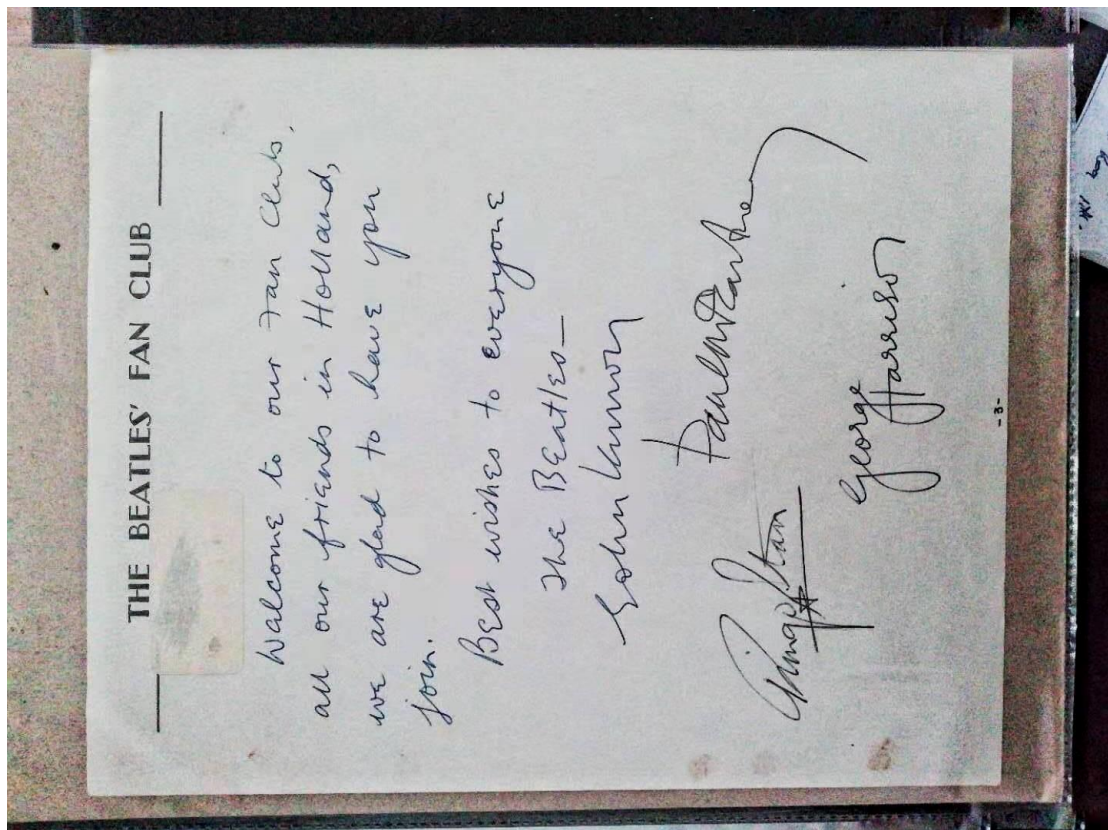 THE BEATLES' FAN CLUB
Walcome to our Fan Club,
all our friends in Holland,
we are glad to have you
join.
Best wishes to everyone
The Beatles—
John Lennon
Paul McCartney
Ringo Starr
George
Harrison
-3-